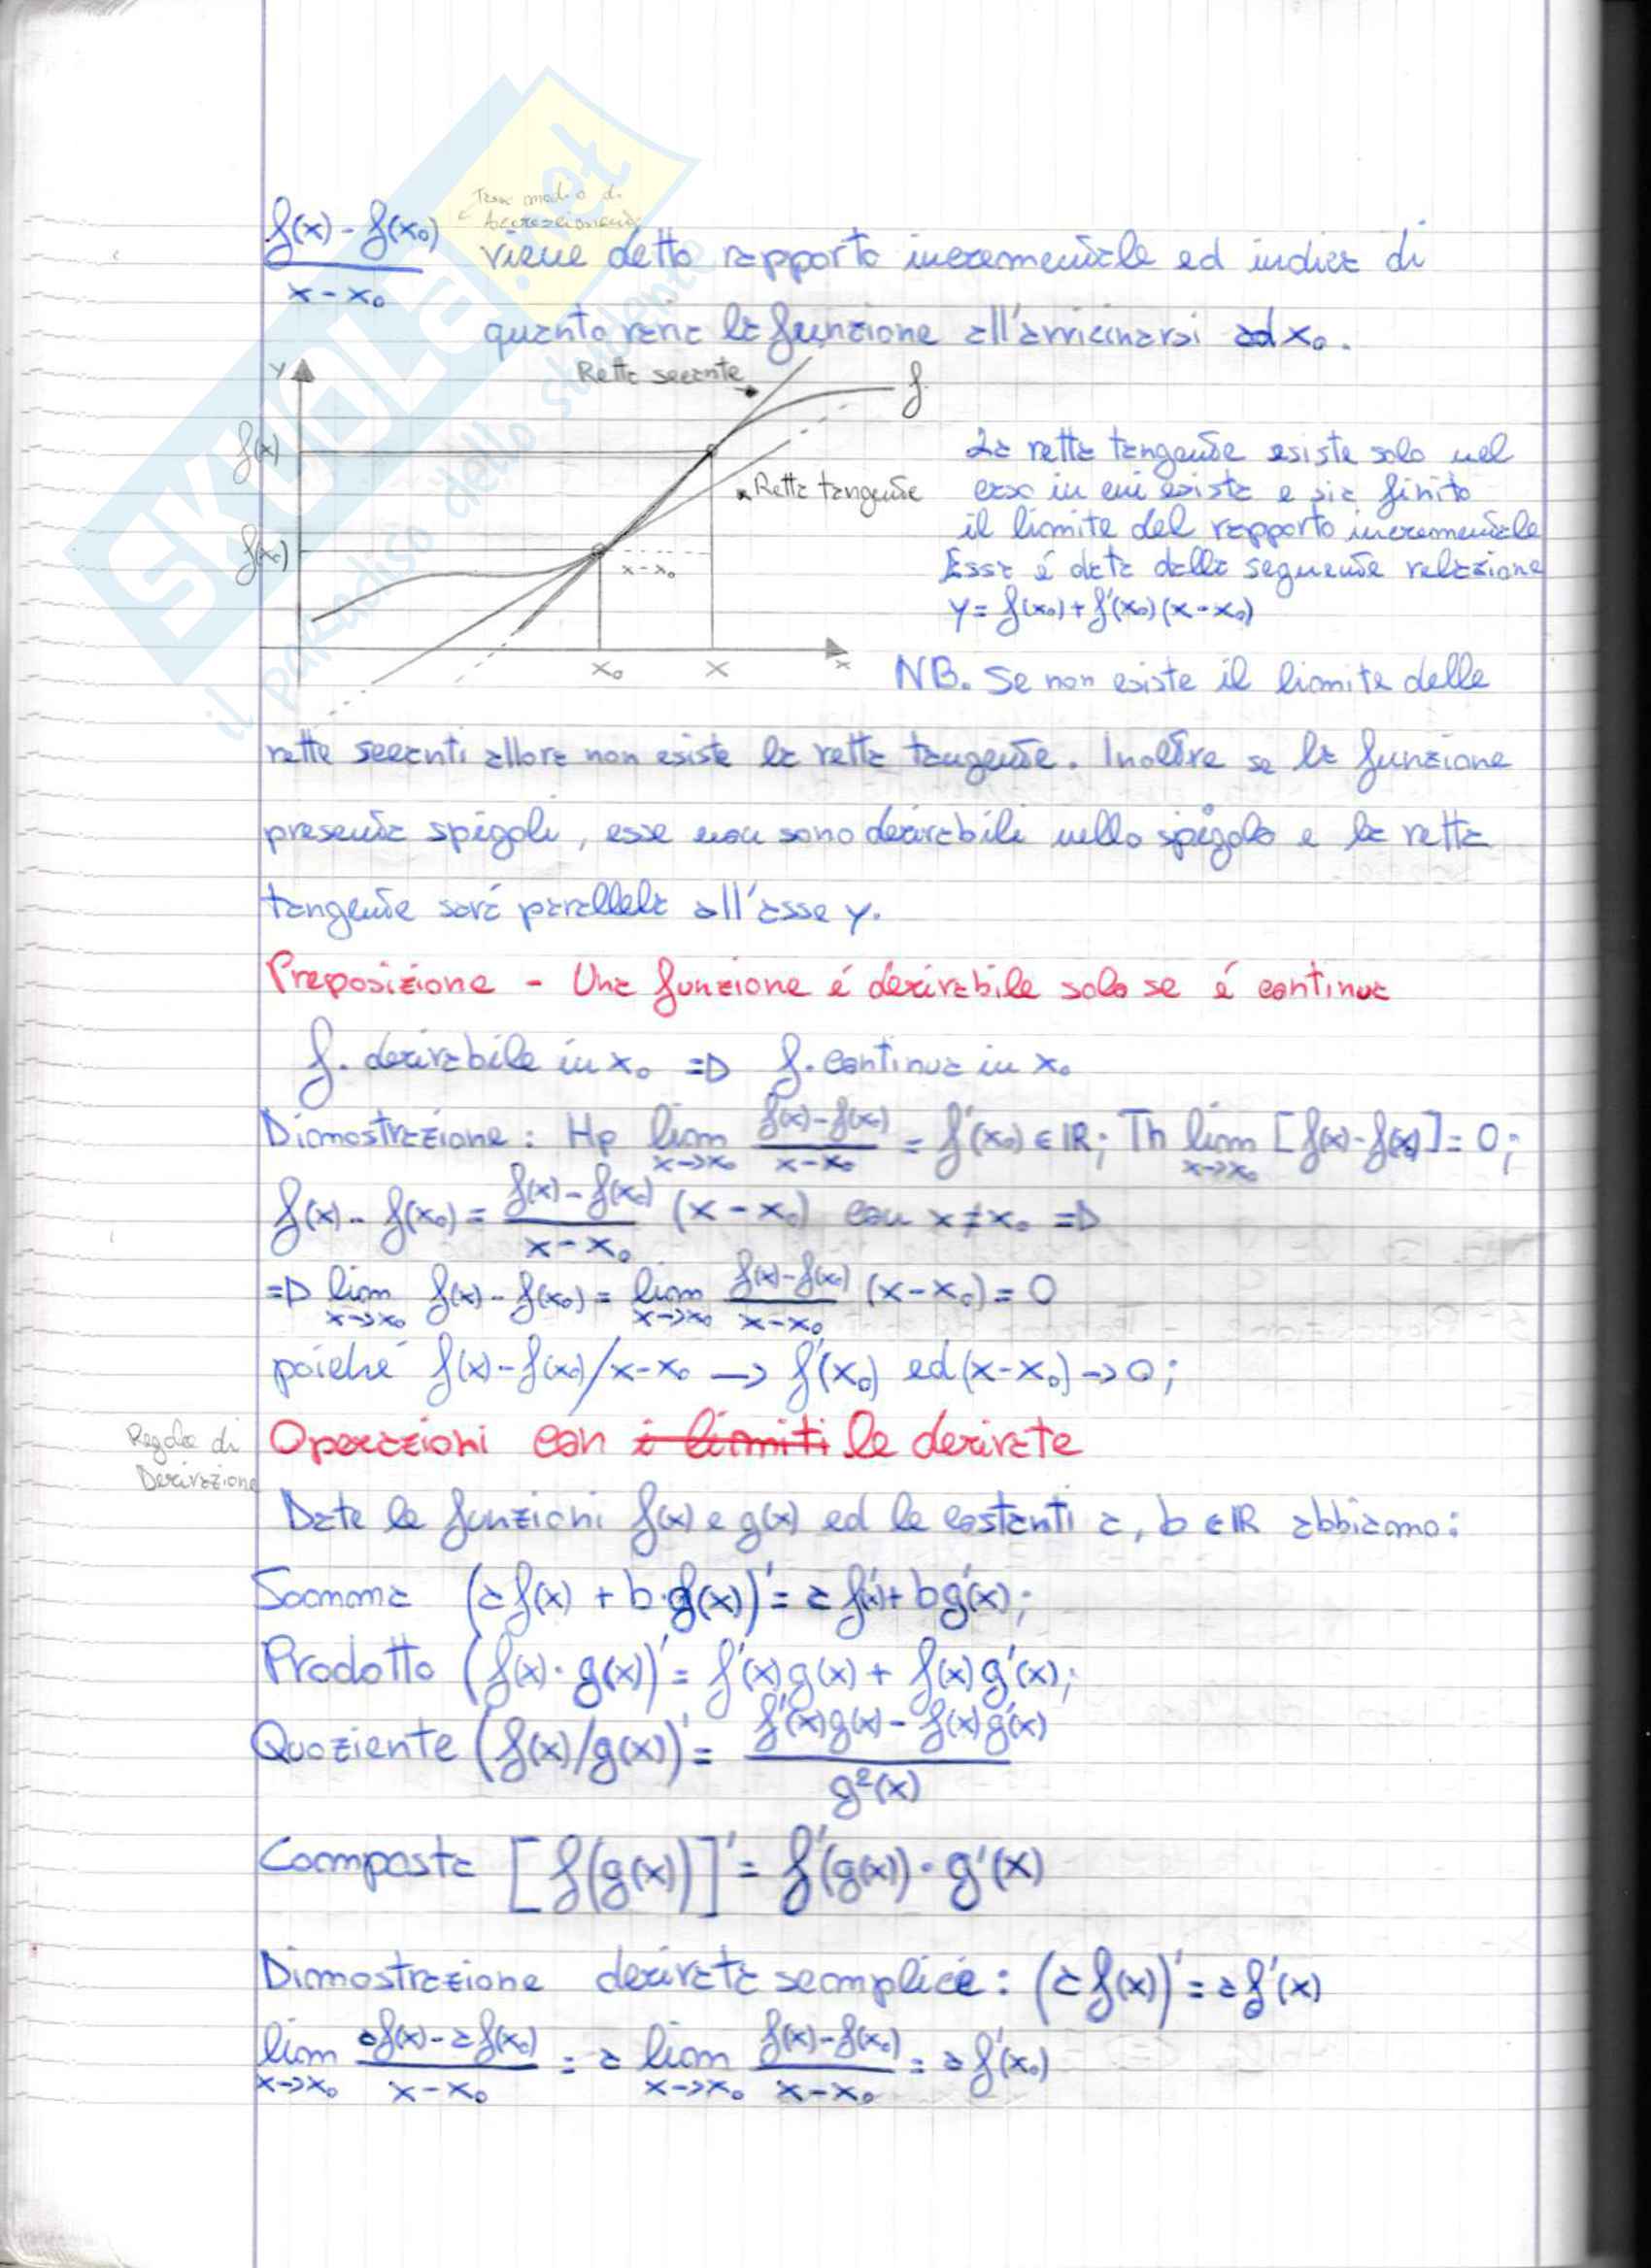 f(x) - f(x₀) / x - x₀ viene detto rapporto incrementale ed indica di
quanto varia la funzione all'avvicinarsi ad x₀.
y
Retta secante
f
f(x)
Retta tangente
f(x₀)
x - x₀
x₀ x x
La retta tangente esiste solo nel
caso in cui esista e sia finito
il limite del rapporto incrementale
Essa é data dalla seguente relazione
y = f(x₀) + f'(x₀)(x - x₀)
NB. Se non esiste il limite delle
rette secanti allora non esiste la retta tangente. Inoltre se la funzione
presenta spigoli, esse non sono derivabili nello spigolo e la retta
tangente sará parallela all'asse y.
Preposizione - Una funzione é derivabile solo se é continua
f. derivabile in x₀ => f. continua in x₀
Dimostrazione: Hp lim x→x₀ f(x) - f(x₀) / x - x₀ = f'(x₀) ∈ ℝ; Th lim x→x₀ [f(x) - f(x₀)] = 0;
f(x) - f(x₀) = f(x) - f(x₀) / x - x₀ (x - x₀) con x ≠ x₀ =>
=> lim x→x₀ f(x) - f(x₀) = lim x→x₀ f(x) - f(x₀) / x - x₀ (x - x₀) = 0
poiché f(x) - f(x₀) / x - x₀ → f'(x₀) ed (x - x₀) → 0;
Regole di
Derivazione
Operazioni con i limiti le derivate
Date le funzioni f(x) e g(x) ed le costanti a, b ∈ ℝ abbiamo:
Somma (a f(x) + b·g(x))' = a f'(x) + b g'(x);
Prodotto (f(x)·g(x))' = f'(x) g(x) + f(x) g'(x);
Quoziente (f(x)/g(x))' = f'(x) g(x) - f(x) g'(x) / g²(x)
Composta [f(g(x))]' = f'(g(x))·g'(x)
Dimostrazione derivata semplice: (a f(x))' = a f'(x)
lim x→x₀ a f(x) - a f(x₀) / x - x₀ = a lim x→x₀ f(x) - f(x₀) / x - x₀ = a f'(x₀)
SKUOLA.net
il paradiso dello studente